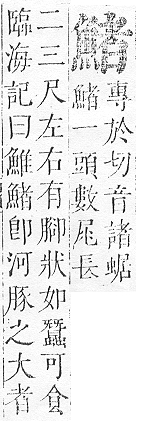 鯺
專於切音諸蝫
鯺一頭數尾長
二三尺左右有腳狀如蠶可食
臨海記曰鯡鯺即河豚之大者